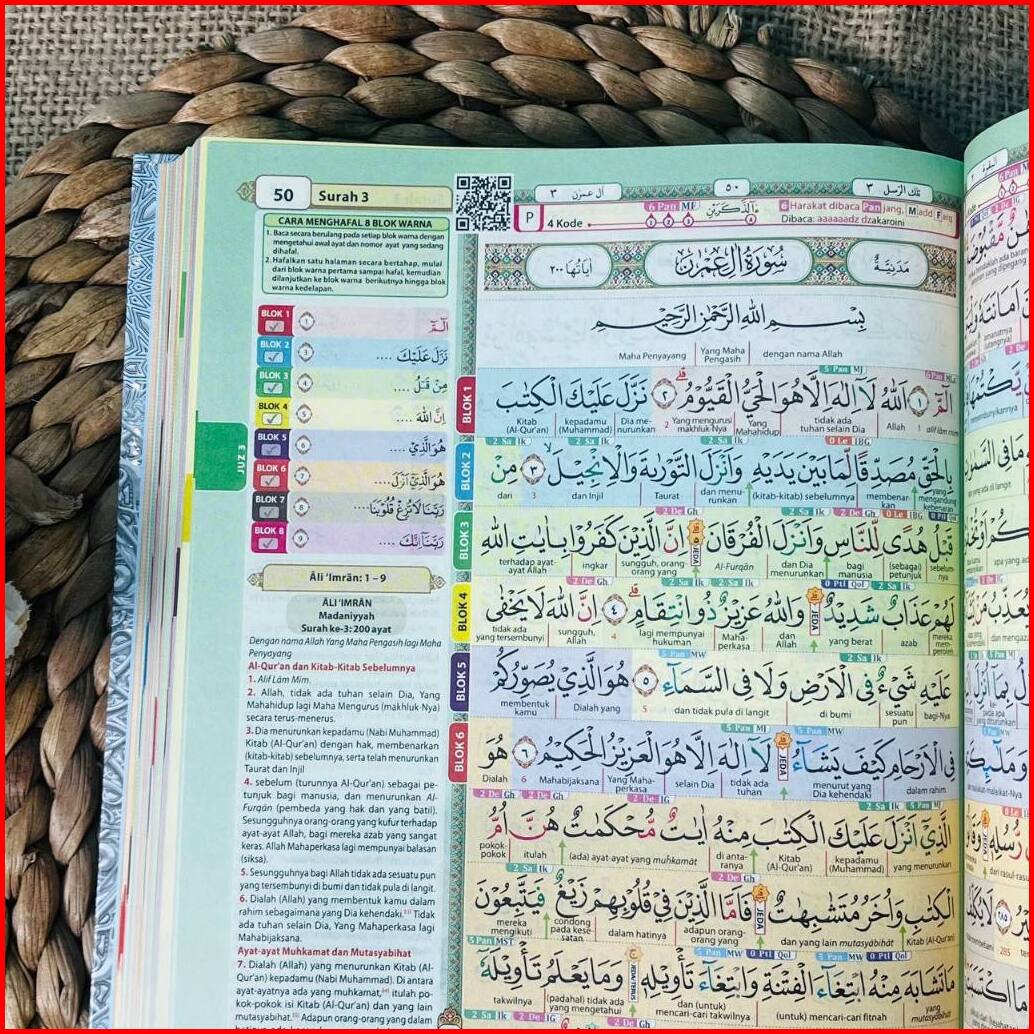 50
Surah 3
CARA MENGHAFAL 8 BLOK WARNA
1. Baca secara berulang pada setiap blok warna dengan
mengetahui awal ayat dan nomor ayat yang sedang
dihafal.
2. Hafalkan satu halaman secara bertahap, mulai
dari blok warna pertama sampai hafal, kemudian
dilanjutkan ke blok warna berikutnya hingga blok
warna kedelapan.
BLOK 1 ١ الٓمّٓ
BLOK 2 ٣ نَزَّلَ عَلَيْكَ ....
BLOK 3 ٤ مِنْ قَبْلُ ....
BLOK 4 ٥ اِنَّ اللّٰهَ ....
BLOK 5 ٦ هُوَ الَّذِيْ ....
BLOK 6 ٧ هُوَ الَّذِيْٓ اَنْزَلَ....
BLOK 7 ٨ رَبَّنَا لَا تُزِغْ قُلُوْبَنَا....
BLOK 8 ٩ رَبَّنَآ اِنَّكَ ....
JUZ 3
Āli ‘Imrān: 1 – 9
ĀLI ‘IMRĀN
Madaniyyah
Surah ke-3: 200 ayat
Dengan nama Allah Yang Maha Pengasih lagi Maha
Penyayang
Al-Qur’an dan Kitab-Kitab Sebelumnya
1. Alif Lām Mīm.
2. Allah, tidak ada tuhan selain Dia, Yang
Mahahidup lagi Maha Mengurus (makhluk-Nya)
secara terus-menerus.
3. Dia menurunkan kepadamu (Nabi Muhammad)
Kitab (Al-Qur’an) dengan hak, membenarkan
(kitab-kitab) sebelumnya, serta telah menurunkan
Taurat dan Injil
4. sebelum (turunnya Al-Qur’an) sebagai pe-
tunjuk bagi manusia, dan menurunkan Al-
Furqān (pembeda yang hak dan yang batil).
Sesungguhnya orang-orang yang kufur terhadap
ayat-ayat Allah, bagi mereka azab yang sangat
keras. Allah Mahaperkasa lagi mempunyai balasan
(siksa).
5. Sesungguhnya bagi Allah tidak ada sesuatu pun
yang tersembunyi di bumi dan tidak pula di langit.
6. Dialah (Allah) yang membentuk kamu dalam
rahim sebagaimana yang Dia kehendaki. Tidak
ada tuhan selain Dia, Yang Mahaperkasa lagi
Mahabijaksana.
Ayat-ayat Muhkamat dan Mutasyabihat
7. Dialah (Allah) yang menurunkan Kitab (Al-
Qur’an) kepadamu (Nabi Muhammad). Di antara
ayat-ayatnya ada yang muhkamat, itulah po-
kok-pokok isi Kitab (Al-Qur’an) dan yang lain
mutasyabihat. Adapun orang-orang yang dalam
تلك الرسل ٣ ٥٠ اٰل عمرٰن ٣
P 4 Kode 6 Pan MF ءٰۤالذَّكَرَيْنِ
6 Harakat dibaca Panjang, Madd Farq
Dibaca: aaaaaadz dzakaroini
مَدَنِيَّةٌ سُوْرَةُ اٰلِ عِمْرٰنَ اٰيَاتُهَا ٢٠٠
بِسْمِ اللّٰهِ الرَّحْمٰنِ الرَّحِيْمِ
dengan nama Allah Yang Maha Pengasih Maha Penyayang
BLOK 1
الٓمّٓ ١ اَللّٰهُ لَآ اِلٰهَ اِلَّا هُوَ الْحَيُّ الْقَيُّوْمُ ٢ نَزَّلَ عَلَيْكَ الْكِتٰبَ
alif lām mīm 1 Allah tidak ada tuhan selain Dia Yang Mahahidup Yang mengurusi makhluk-Nya 2 Dia menurunkan kepadamu (Muhammad) Kitab (Al-Qur’an)
BLOK 2
بِالْحَقِّ مُصَدِّقًا لِّمَا بَيْنَ يَدَيْهِ وَاَنْزَلَ التَّوْرٰىةَ وَالْاِنْجِيْلَ ٣ مِنْ
yang mengandung kebenaran membenarkan (kitab-kitab) sebelumnya dan menurunkan Taurat dan Injil 3 dari
BLOK 3
قَبْلُ هُدًى لِّلنَّاسِ وَاَنْزَلَ الْفُرْقَانَ JEDA اِنَّ الَّذِيْنَ كَفَرُوْا بِاٰيٰتِ اللّٰهِ
sebelumnya (sebagai) petunjuk bagi manusia dan Dia menurunkan Al-Furqān sungguh, orang-orang yang ingkar terhadap ayat-ayat Allah
BLOK 4
لَهُمْ عَذَابٌ شَدِيْدٌ JEDA وَاللّٰهُ عَزِيْزٌ ذُو انْتِقَامٍ ٤ اِنَّ اللّٰهَ لَا يَخْفٰى
mereka memperoleh azab yang berat dan Allah Mahaperkasa lagi mempunyai hukuman 4 sungguh, Allah tidak ada yang tersembunyi
BLOK 5
عَلَيْهِ شَيْءٌ فِى الْاَرْضِ وَلَا فِى السَّمَاۤءِ ٥ هُوَ الَّذِيْ يُصَوِّرُكُمْ
bagi-Nya sesuatu pun di bumi dan tidak pula di langit 5 Dialah yang membentuk kamu
BLOK 6
فِى الْاَرْحَامِ كَيْفَ يَشَاۤءُ JEDA لَآ اِلٰهَ اِلَّا هُوَ الْعَزِيْزُ الْحَكِيْمُ ٦ هُوَ
dalam rahim menurut yang Dia kehendaki tidak ada tuhan selain Dia Yang Mahaperkasa Mahabijaksana 6 Dialah
الَّذِيْٓ اَنْزَلَ عَلَيْكَ الْكِتٰبَ مِنْهُ اٰيٰتٌ مُّحْكَمٰتٌ هُنَّ اُمُّ
yang menurunkan kepadamu (Muhammad) Kitab (Al-Qur’an) di antaranya (ada) ayat-ayat yang muḥkamāt itulah pokok-pokok
الْكِتٰبِ وَاُخَرُ مُتَشٰبِهٰتٌ JEDA فَاَمَّا الَّذِيْنَ فِيْ قُلُوْبِهِمْ زَيْغٌ فَيَتَّبِعُوْنَ
Kitab (Al-Qur’an) dan yang lain mutasyābihāt adapun orang-orang yang dalam hatinya condong pada kesesatan mereka mengikuti
مَا تَشَابَهَ مِنْهُ ابْتِغَاۤءَ الْفِتْنَةِ وَابْتِغَاۤءَ تَأْوِيْلِهٖ وَمَا يَعْلَمُ تَأْوِيْلَهٗٓ
yang mutasyābihāt (untuk) mencari-cari fitnah dan (untuk) mencari-cari takwilnya (padahal) tidak ada yang mengetahui takwilnya